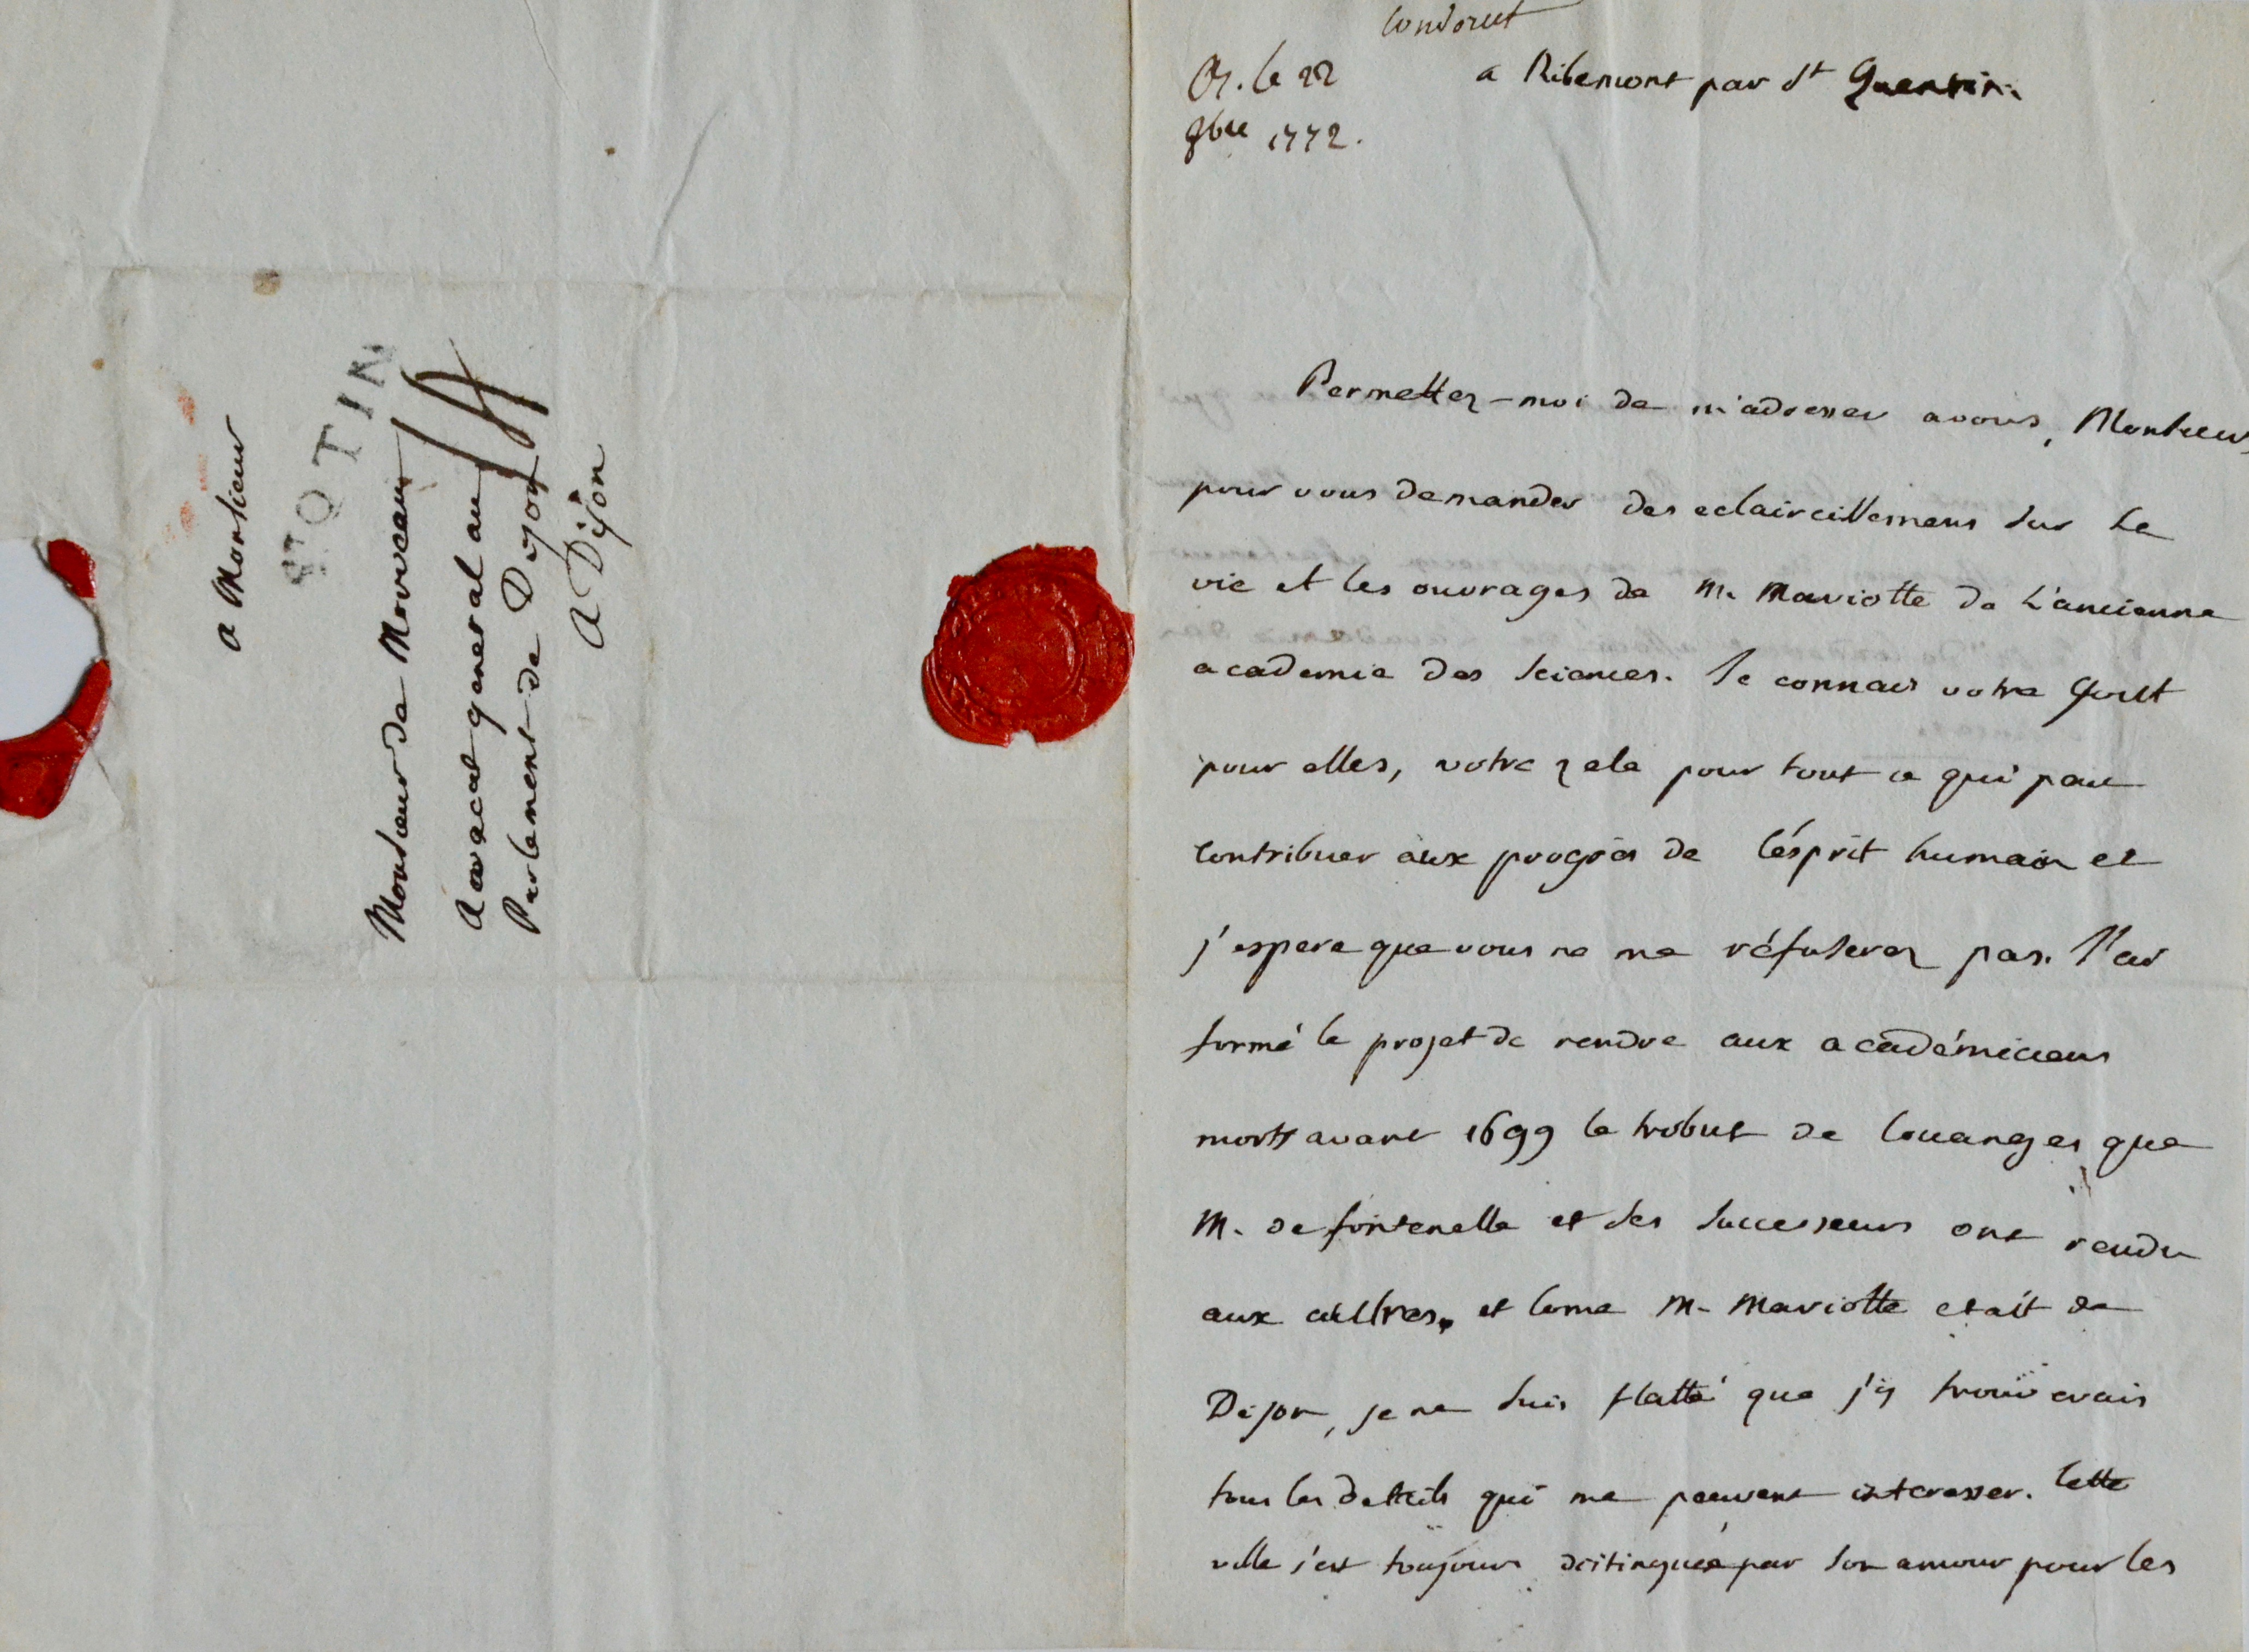 a Monsieur
ST QTIN
Monsieur de Morveau
avocat general au
Parlement de Dijon
A Dijon
Condorcet
R. le 22
9bre 1772.
a Ribemont par St Quentin
Permettez-moi de m'adresser a vous, Monsieur,
pour vous demander des eclaircissemens sur la
vie et les ouvrages de M. Mariotte de L'ancienne
academie des Sciences. Je connais votre Goust
pour elles, votre zele pour tout ce qui peut
contribuer aux progrès de l'ésprit humain et
j'espere que vous ne me réfuserez pas. J'ai
formé le projet de rendre aux académiciens
morts avant 1699 le tribut de louanges que
M. de fontenelle et ses successeurs ont rendu
aux aultres. et come M. Mariotte etait de
Dijon, je me suis flatté que j'y trouverais
tous les details qui me peuvent interesser. Cette
ville s'est toujours distinguée par son amour pour les